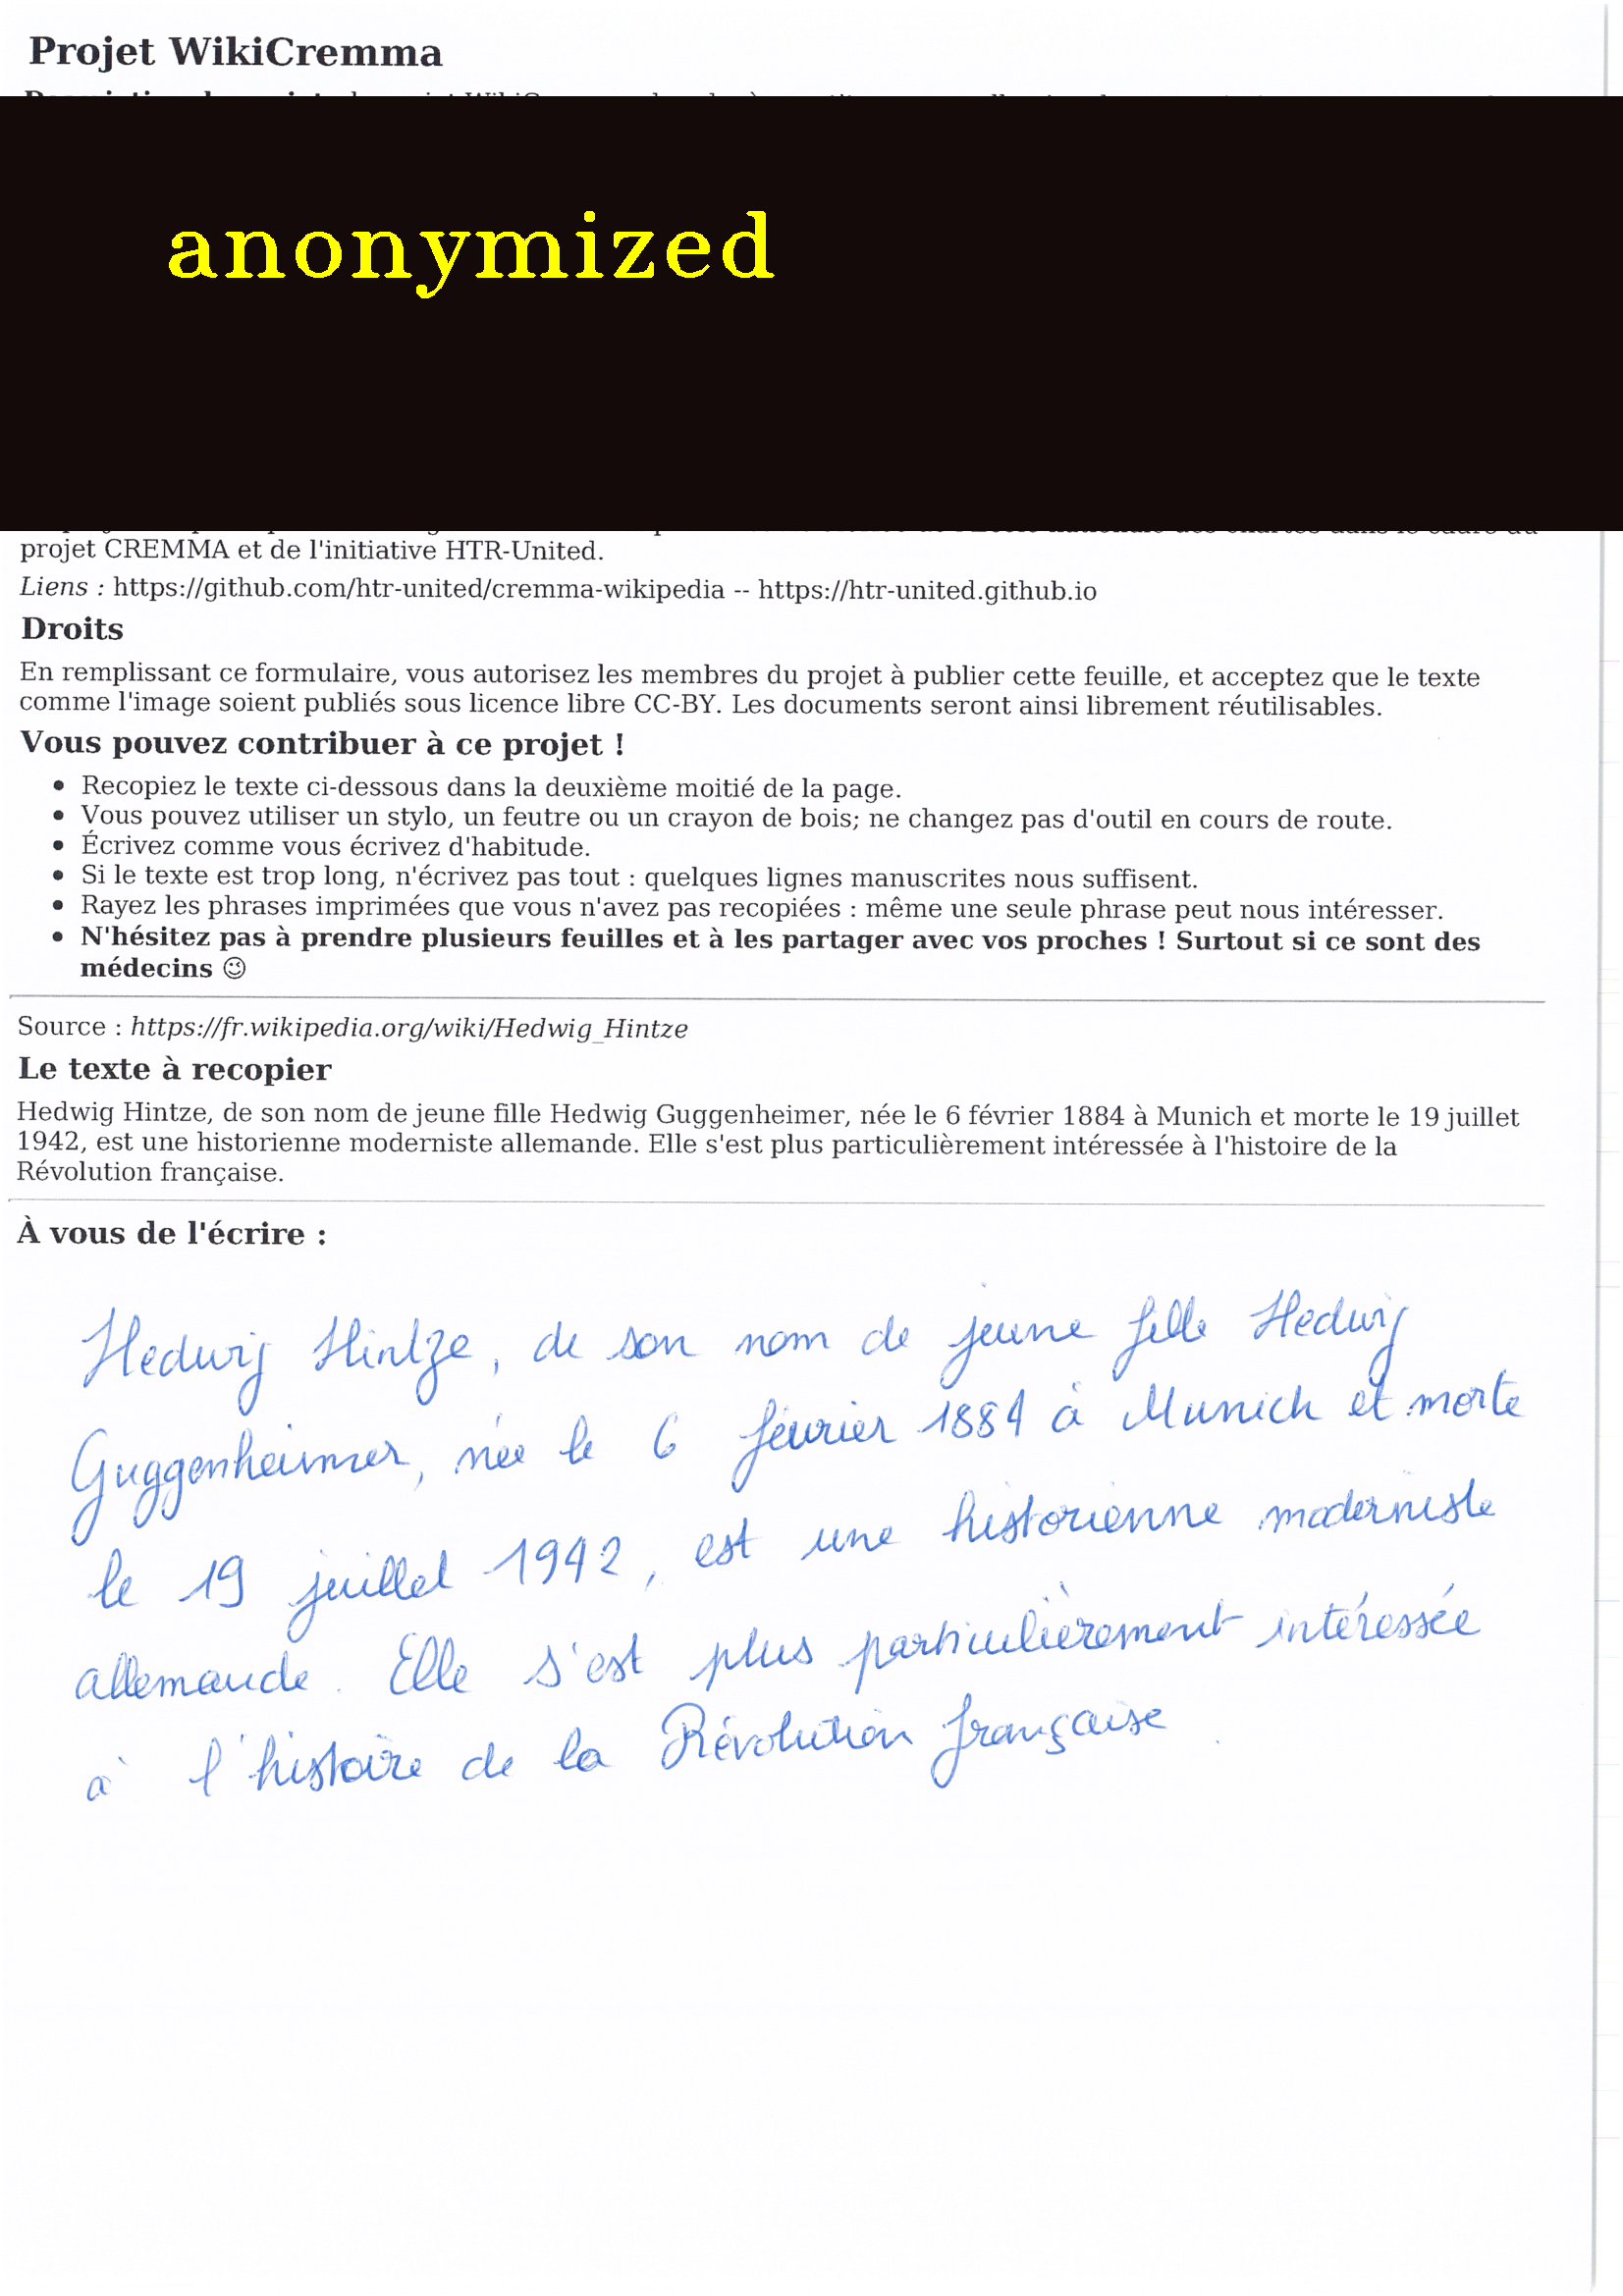 Projet WikiCremma
anonymized
projet CREMMA et de l'initiative HTR-United.
Liens : https://github.com/htr-united/cremma-wikipedia -- https://htr-united.github.io
Droits
En remplissant ce formulaire, vous autorisez les membres du projet à publier cette feuille, et acceptez que le texte
comme l'image soient publiés sous licence libre CC-BY. Les documents seront ainsi librement réutilisables.
Vous pouvez contribuer à ce projet !
• Recopiez le texte ci-dessous dans la deuxième moitié de la page.
• Vous pouvez utiliser un stylo, un feutre ou un crayon de bois; ne changez pas d'outil en cours de route.
• Écrivez comme vous écrivez d'habitude.
• Si le texte est trop long, n'écrivez pas tout : quelques lignes manuscrites nous suffisent.
• Rayez les phrases imprimées que vous n'avez pas recopiées : même une seule phrase peut nous intéresser.
• N'hésitez pas à prendre plusieurs feuilles et à les partager avec vos proches ! Surtout si ce sont des
médecins 😉
Source : https://fr.wikipedia.org/wiki/Hedwig_Hintze
Le texte à recopier
Hedwig Hintze, de son nom de jeune fille Hedwig Guggenheimer, née le 6 février 1884 à Munich et morte le 19 juillet
1942, est une historienne moderniste allemande. Elle s'est plus particulièrement intéressée à l'histoire de la
Révolution française.
À vous de l'écrire :
Hedwig Hintze, de son nom de jeune fille Hedwig
Guggenheimer, née le 6 février 1884 à Munich et morte
le 19 juillet 1942, est une historienne moderniste
allemande. Elle s'est plus particulièrement intéressée
à l'histoire de la Révolution française.